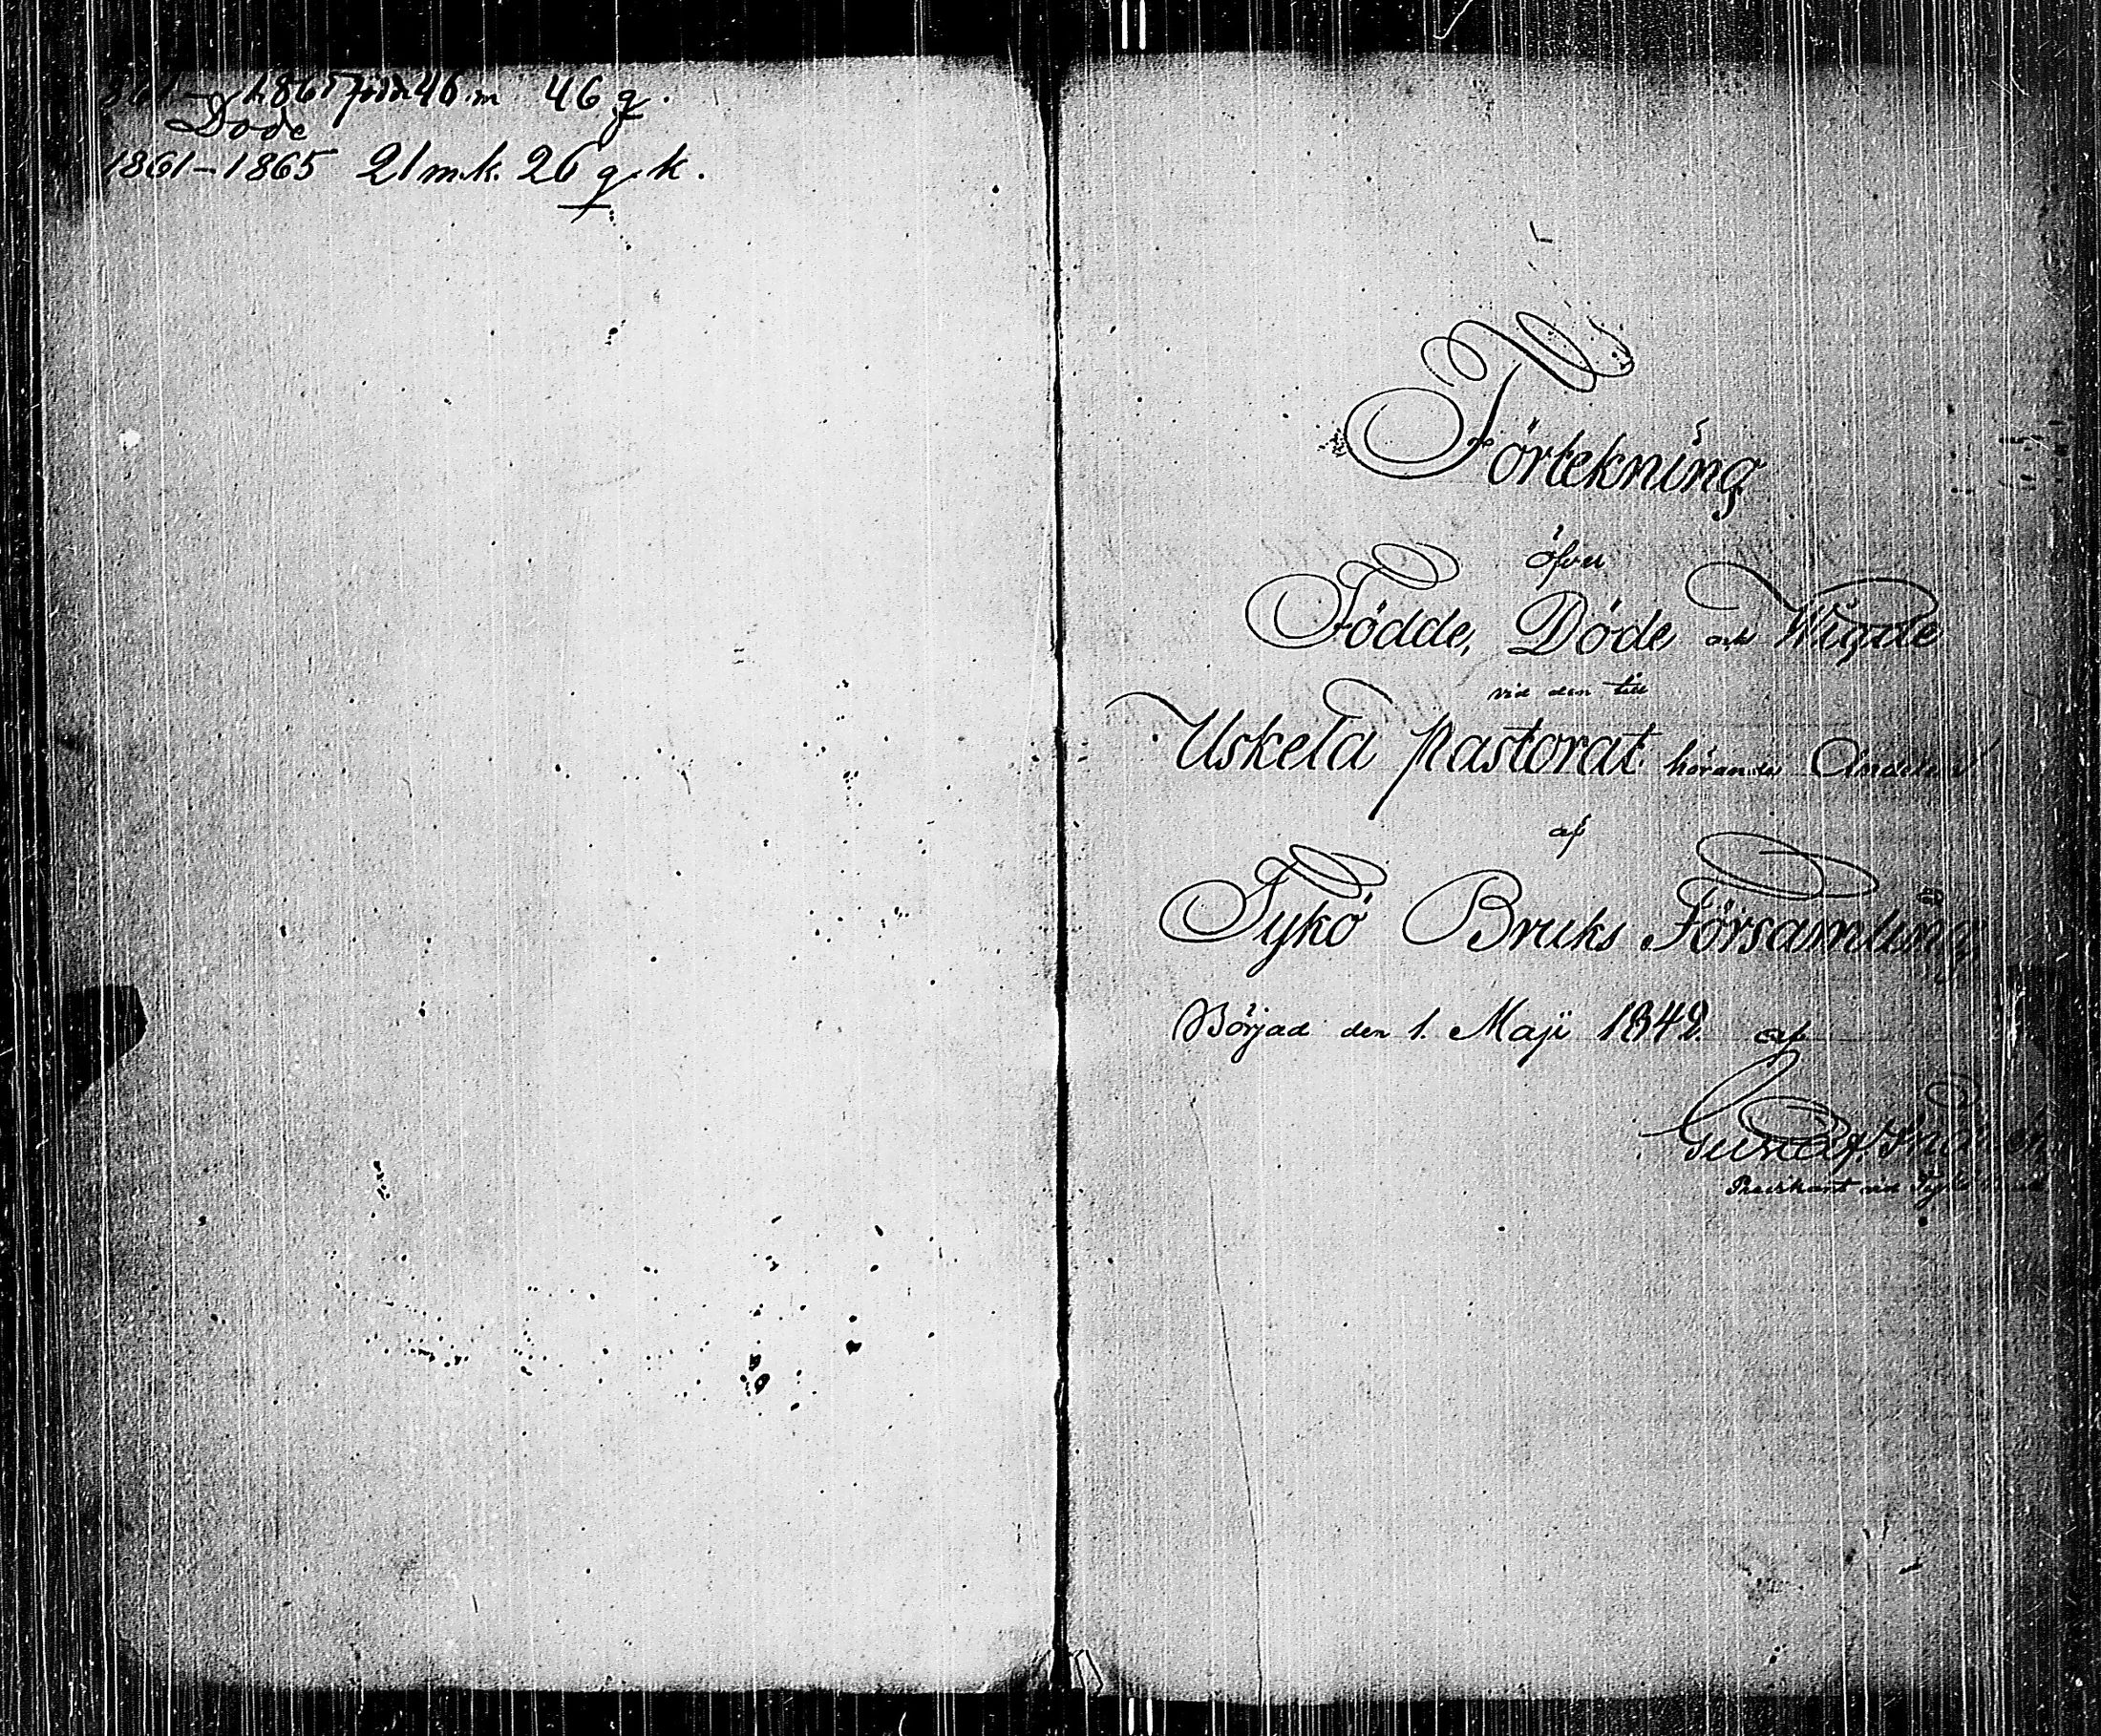 1861-1865 födde 40 m 46 q.
Döde
1861-1865 21 m.k. 26 q.k.
Förtekning
öfver
Födde, Döde och Wigde
vid den till
Uskela pastorat hörande Andelen
af
Tykö Bruks Församling
Börjad den 1. Maji 1842. af
Gustaf
Predikant vid Tykö Bruk